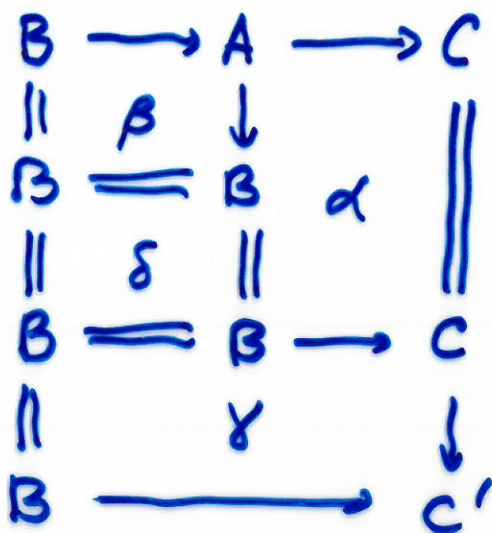 B → A → C
β
B B α
δ
B B → C
γ
B → C'